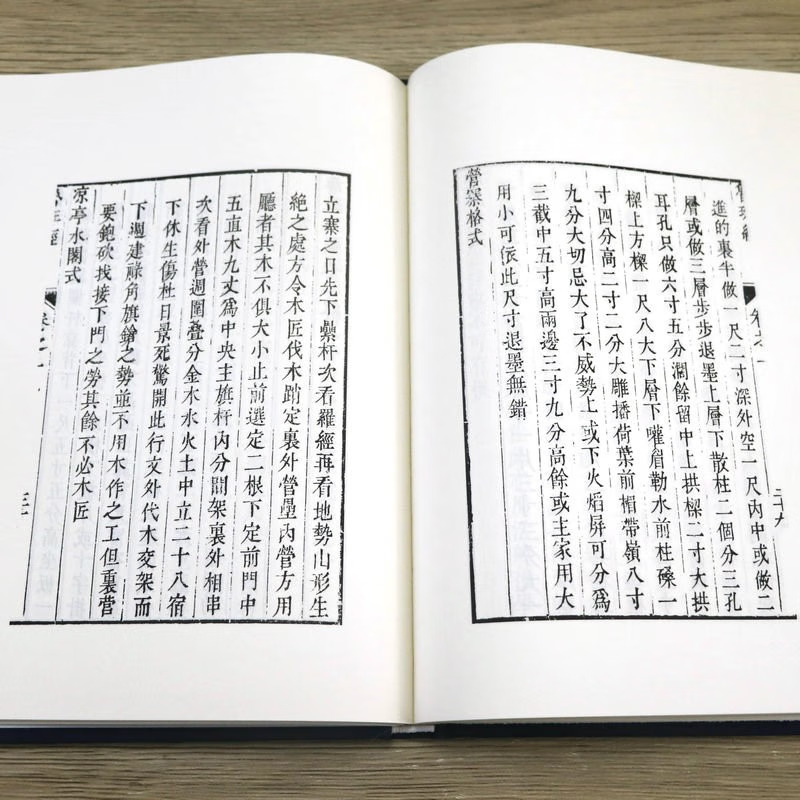 進的裏半做一尺二寸深外空一尺內中或做二
層或做三層步步退墨上層下散柱二個分三孔
耳孔只做六寸五分濶餘留中上拱樑二寸大拱
樑上方樑一尺八大下層下嚾眉勒水前柱磉一
寸四分高二寸二分大雕播荷葉前楣帶嶺八寸
九分大切忌大了不威勢上或下火熖屏可分爲
三截中五寸高兩邊三寸九分高餘或主家用大
用小可依此尺寸退墨無錯
營寨格式
立寨之日先下纍杆次看羅經再看地勢山形生
絕之處方令木匠伐木踏定裏外營壘內營方用
廳者其木不俱大小止前選定二根下定前門中
五直木九丈爲中央主旗杆內分間架裏外相串
次看外營週圍叠分金木水火土中立二十八宿
下休生傷杜日景死驚開此行文外代木交架而
下週建祿角旗鎗之勢並不用木作之工但裏營
要鉋砍找接下門之勞其餘不必木匠
凉亭水閣式